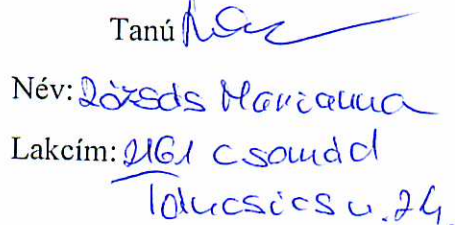 Tanú
Név: Rózsás Marianna
Lakcím: 2161 Csomád
Táncsics u. 24.